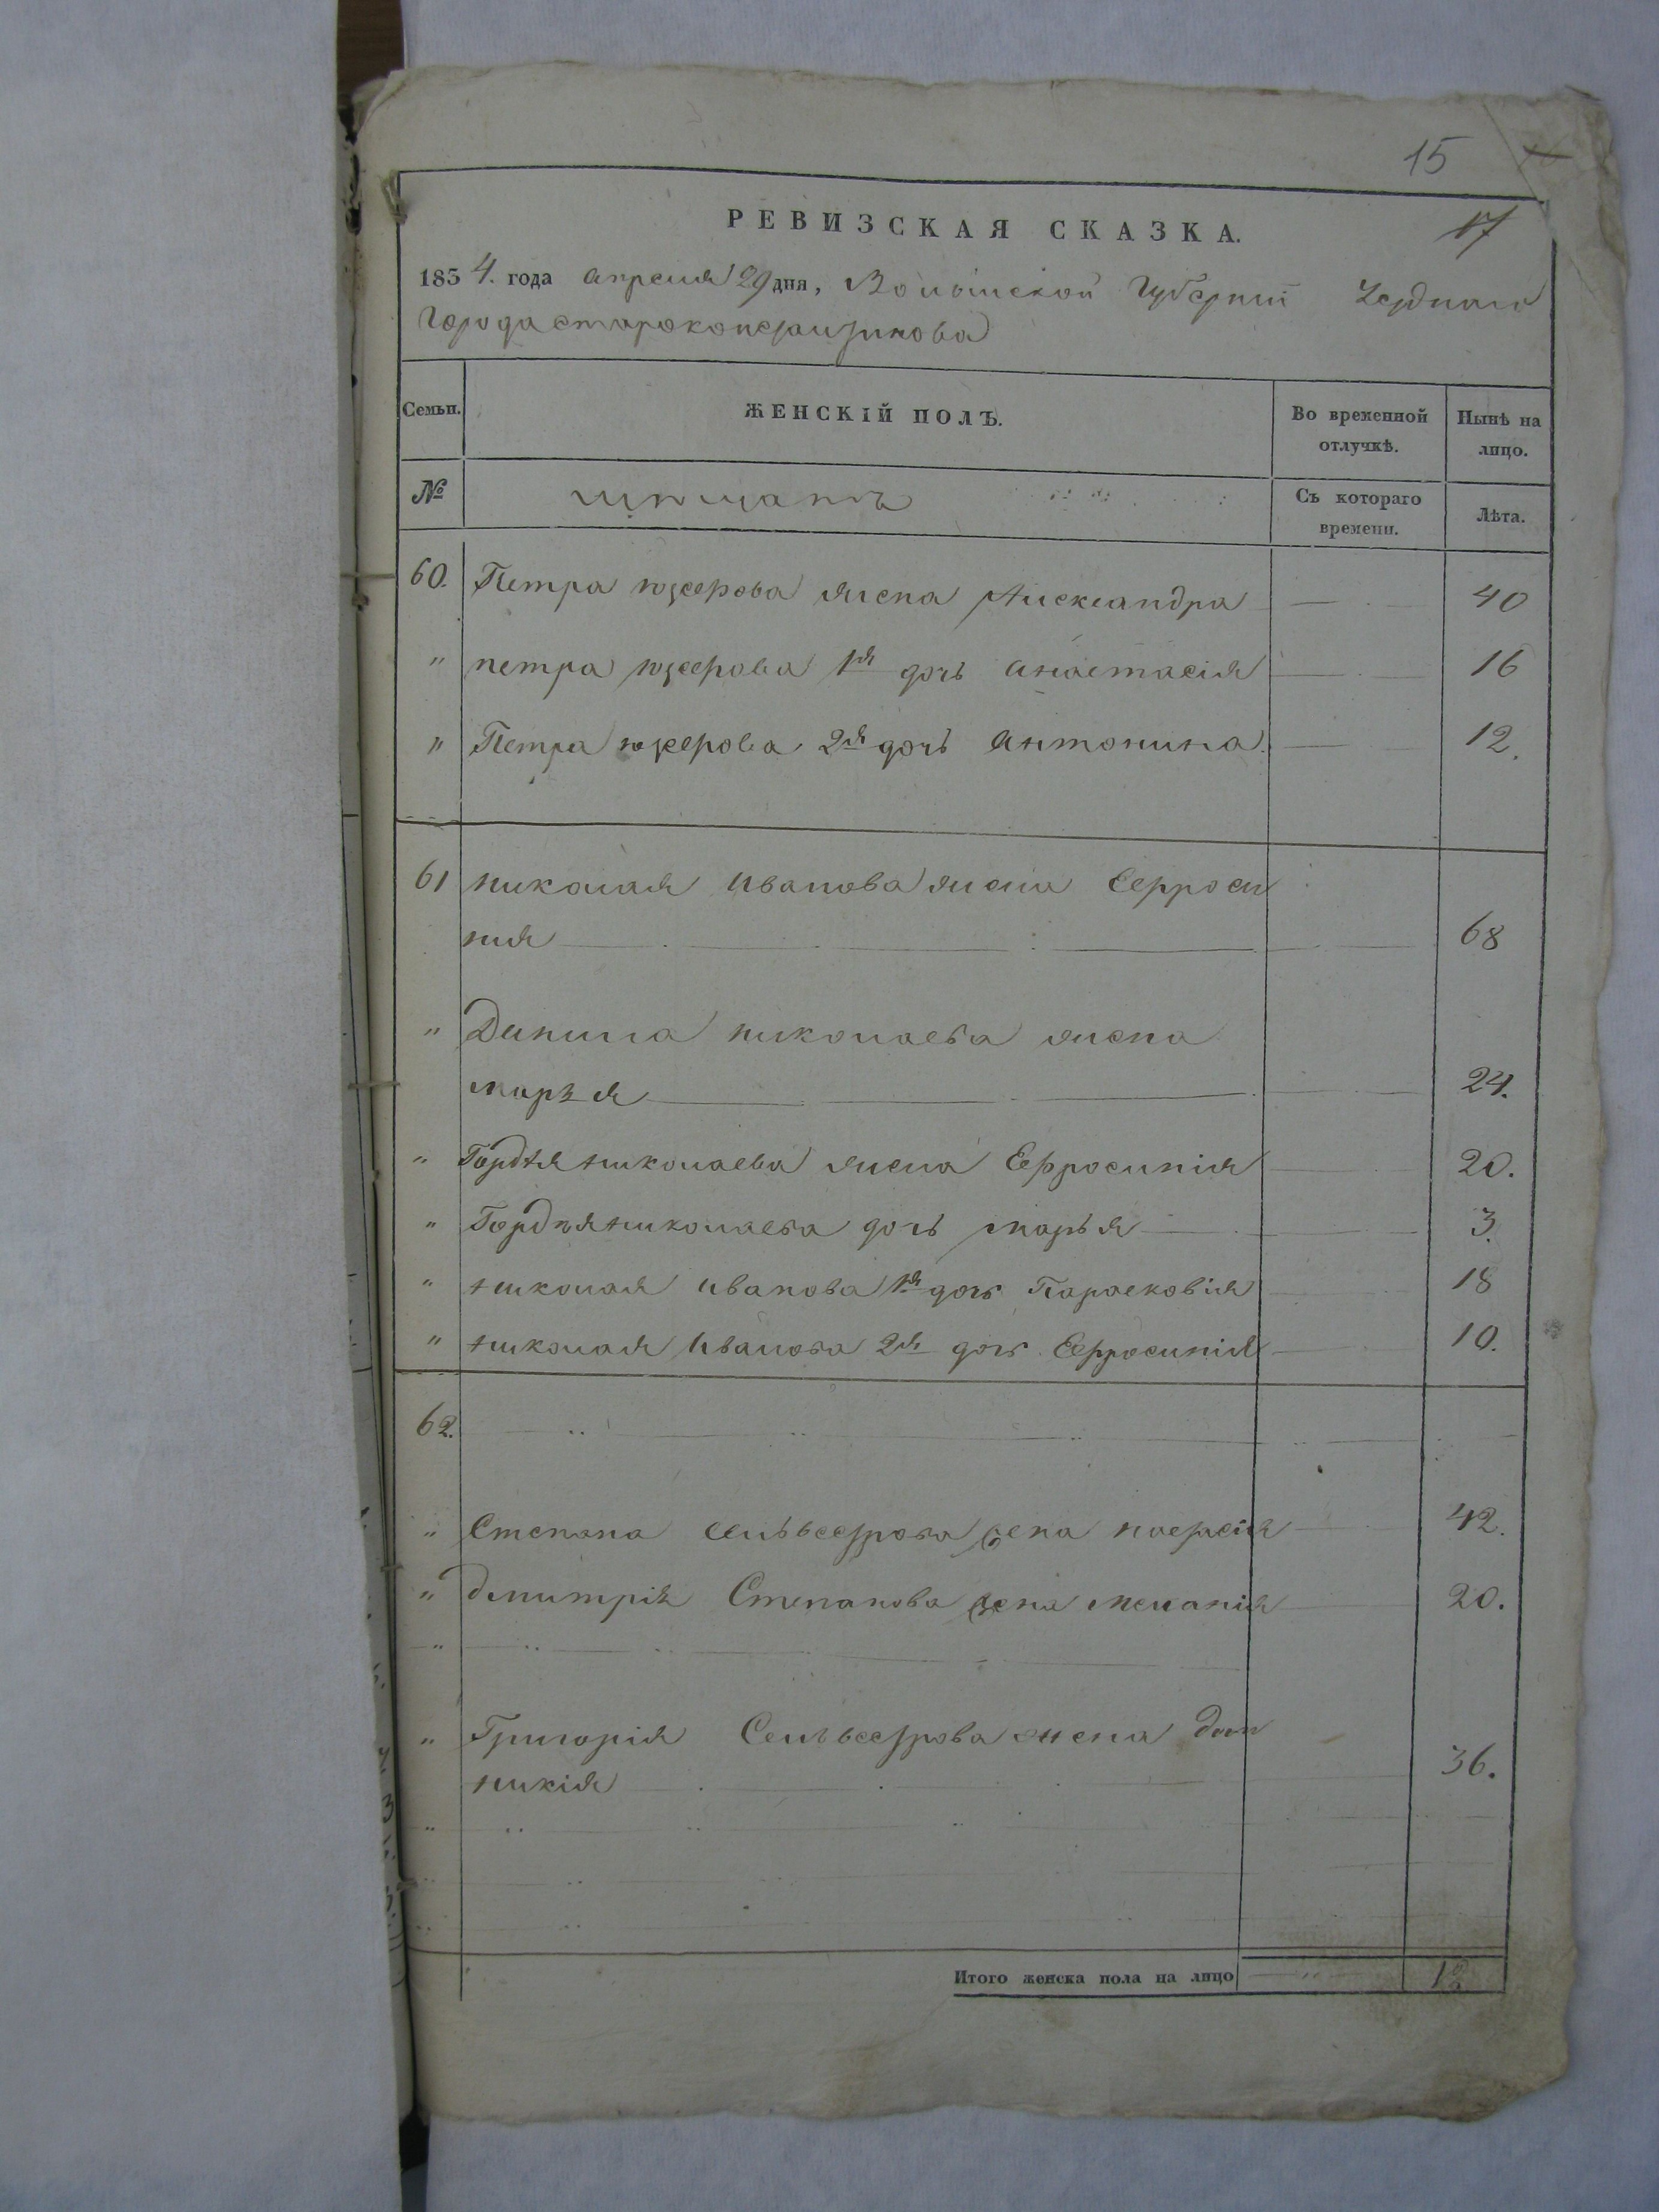 15
17
РЕВИЗСКАЯ СКАЗКА.
1854. года апреля 29 дня, Волынской Губернии Уезднаго
Города староконстантинова
Семьи.
ЖЕНСКІЙ ПОЛЪ.
Во временной
отлучкѣ.
Нынѣ на
лицо.
№
мещанъ
Съ котораго
времени.
Лѣта.
60. Петра жена Александра 40
" петра 1я дочь анастасія 16
" Петра 2я дочь антонина. 12.
61 николая иванова жена Ефроси
нія 68
" Данила николаева жена
марья 24.
" Гордѣя николаева жена Ефросинія 20.
" Гордѣя николаева дочь марья 3.
" николая иванова 1я дочь Парасковія 18
" николая иванова 2я дочь Ефросинія 10.
62.
" Степана сельвестрова жена настасія 42.
" дмитрія Степанова жена меланія 20.
"
" Григорія Сельвестрова жена дом
никія 36.
Итого женска пола на лицо 12